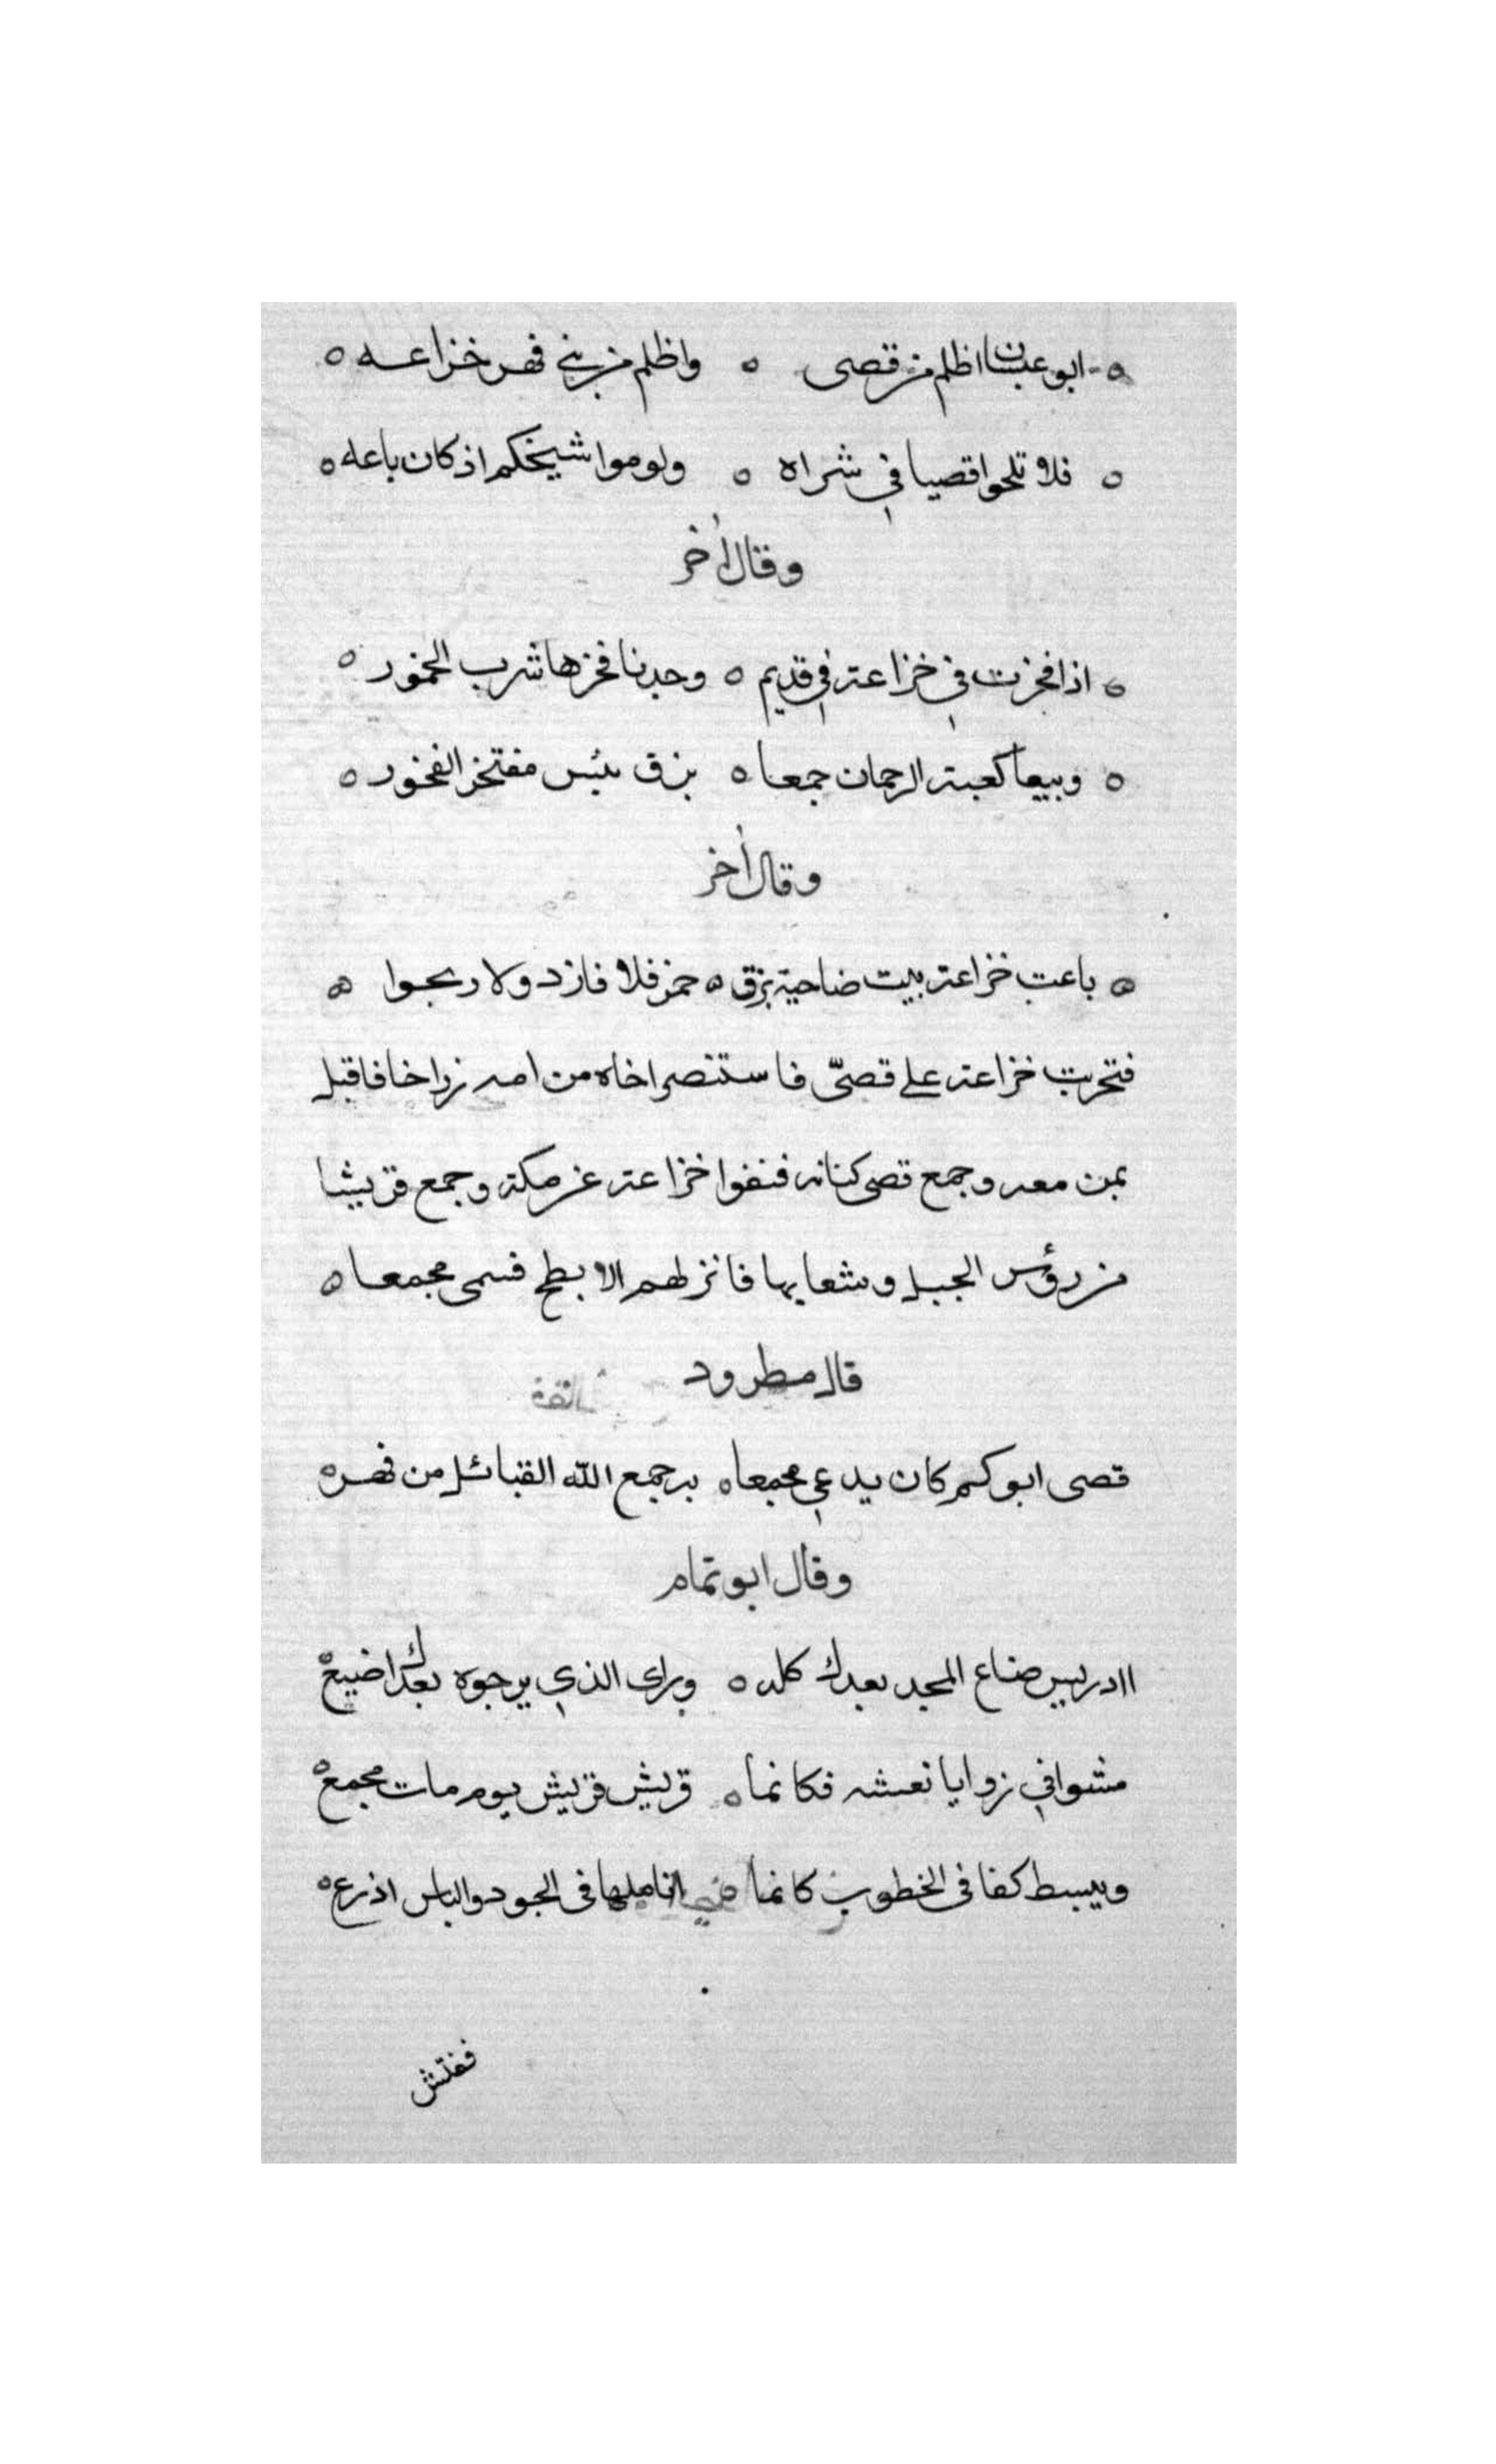 ابو غبشان اظلم من قصى ٥ واظلم من بني فهر خزاعه ٥
٥ فلا تلحوا قصيا في شراه ٥ ولوموا شيخكم اذ كان باعه ٥
وقال اخر
٥ اذا فخرت في خزاعة في قديم ٥ وجدنا فخرها شرب الخمور ٥
٥ وبيعا كعبة الرحمان جمعا ٥ بزق بئس مفتخر الفخور ٥
وقال اخر
٥ باعت خزاعة بيت ضاحية بزق ٥ خمر فلا فازد ولا ربحوا ٥
فتحربت خزاعة على قصيّ فاستنصر اخاه من امه زراخا فاقبل
بمن معه وجمع قصى كنانه فنفوا خزاعة عن مكة وجمع قريشا
من رؤس الجبل وشعابها فانزلهم الابطح فسمى مجمعا ٥
قال مطرود
قصى ابوكم كان يدعي مجمعا ٥ به جمع الله القبائل من فهر ٥
وقال ابو تمام
اادريس ضاع المجد بعدك كله ٥ وراى الذي يرجوه بعدك اضيع ٥
مشوا في زوايا نعشه فكانما ٥ قريش قريش يوم مات مجمع ٥
ويبسط كفا فى الخطوب كانما اناملها فى الجود والباس اذرع ٥
ففتش